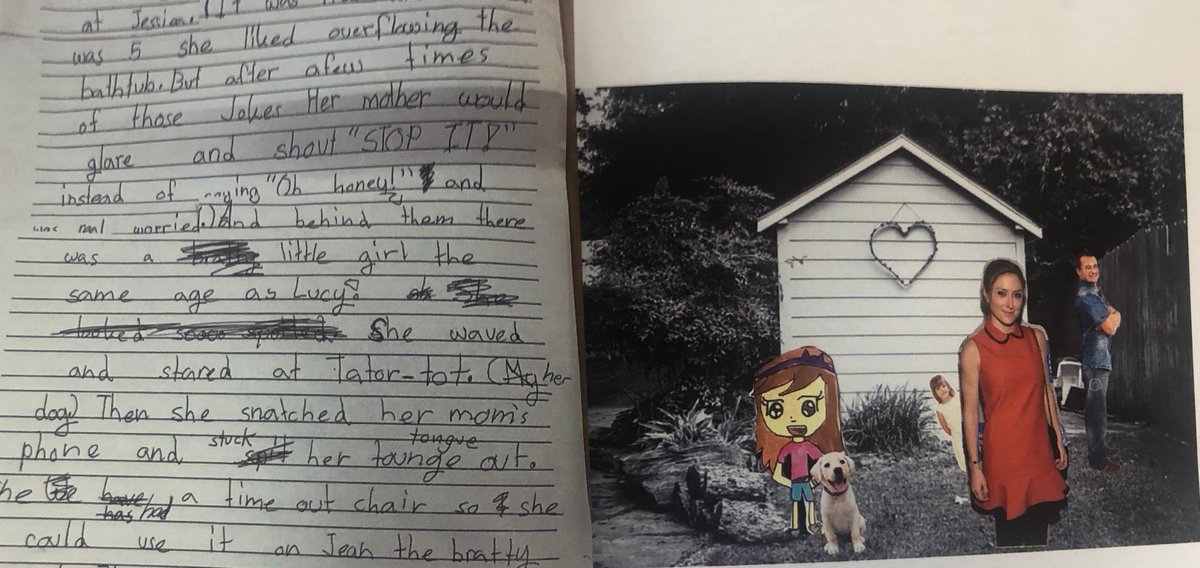 at Jessica. (It was
was 5 she liked overflowing the
bathtub. But after afew times
of those Jokes Her mother would
glare and shout "STOP IT!"
instead of saying "Oh honey!" and
real worried.) And behind them there
was a bratty little girl the
same age as Lucy?
looked soooo spoiled. She waved
and stared at Tator-tot. (My her
dog) Then she snatched her mom's
phone and stuck her tounge tongue out.
he have has had a time out chair so she
could use it on Jean the bratty